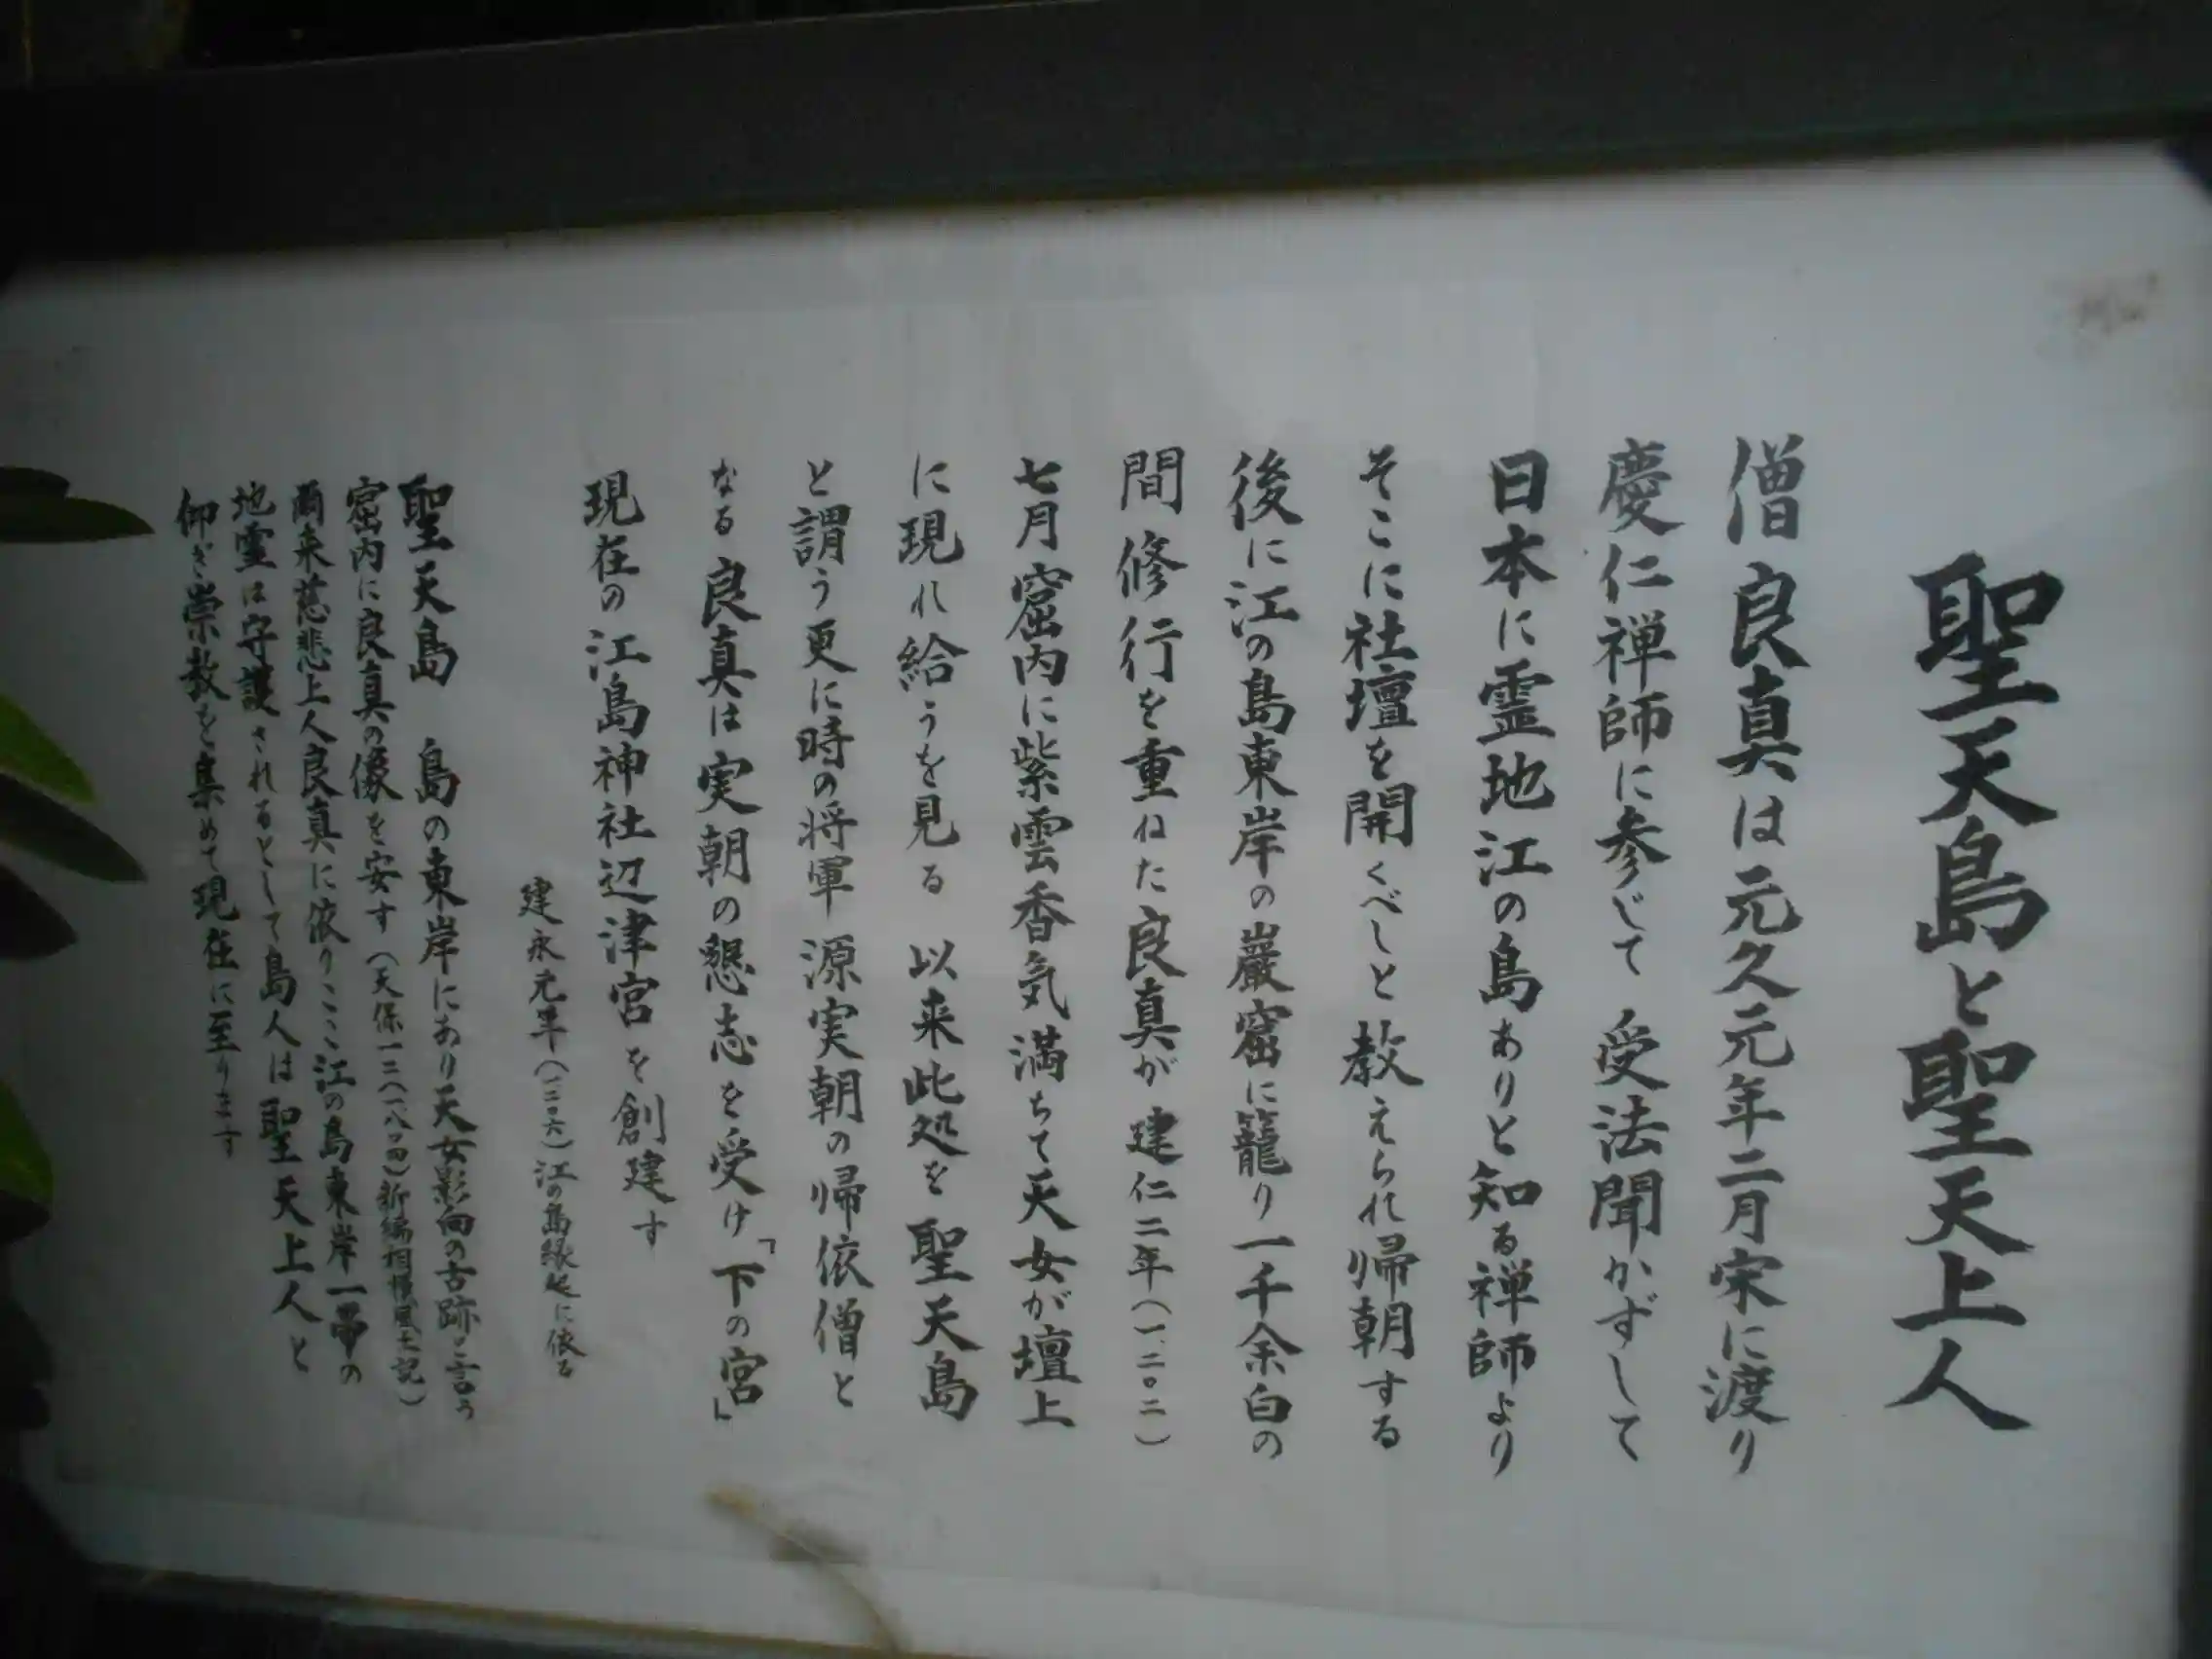 聖天島と聖天上人
僧良真は元久元年二月宋に渡り
慶仁禅師に参じて 受法聞かずして
日本に霊地江の島ありと知る禅師より
そこに社壇を開くべしと教えられ帰朝する
後に江の島東岸の巌窟に籠り一千余白の
間修行を重ねた良真が建仁二年(一二〇二)
七月窟内に紫雲香気満ちて天女が壇上
に現れ給うを見る 以来此処を聖天島
と謂う更に時の将軍源実朝の帰依僧と
なる良真は実朝の懇志を受け「下の宮」
現在の江島神社辺津宮を創建す
建永元年(一二〇六)江の島縁起に依る
聖天島 島の東岸にあり天女影向の古跡と言う
窟内に良真の像を安す(天保一二(一八四一)新編相模風土記)
爾来慈悲上人良真に依りここ江の島東岸一帯の
地霊は守護されるとして島人は聖天上人と
仰ぎ崇敬を集めて現在に至ります